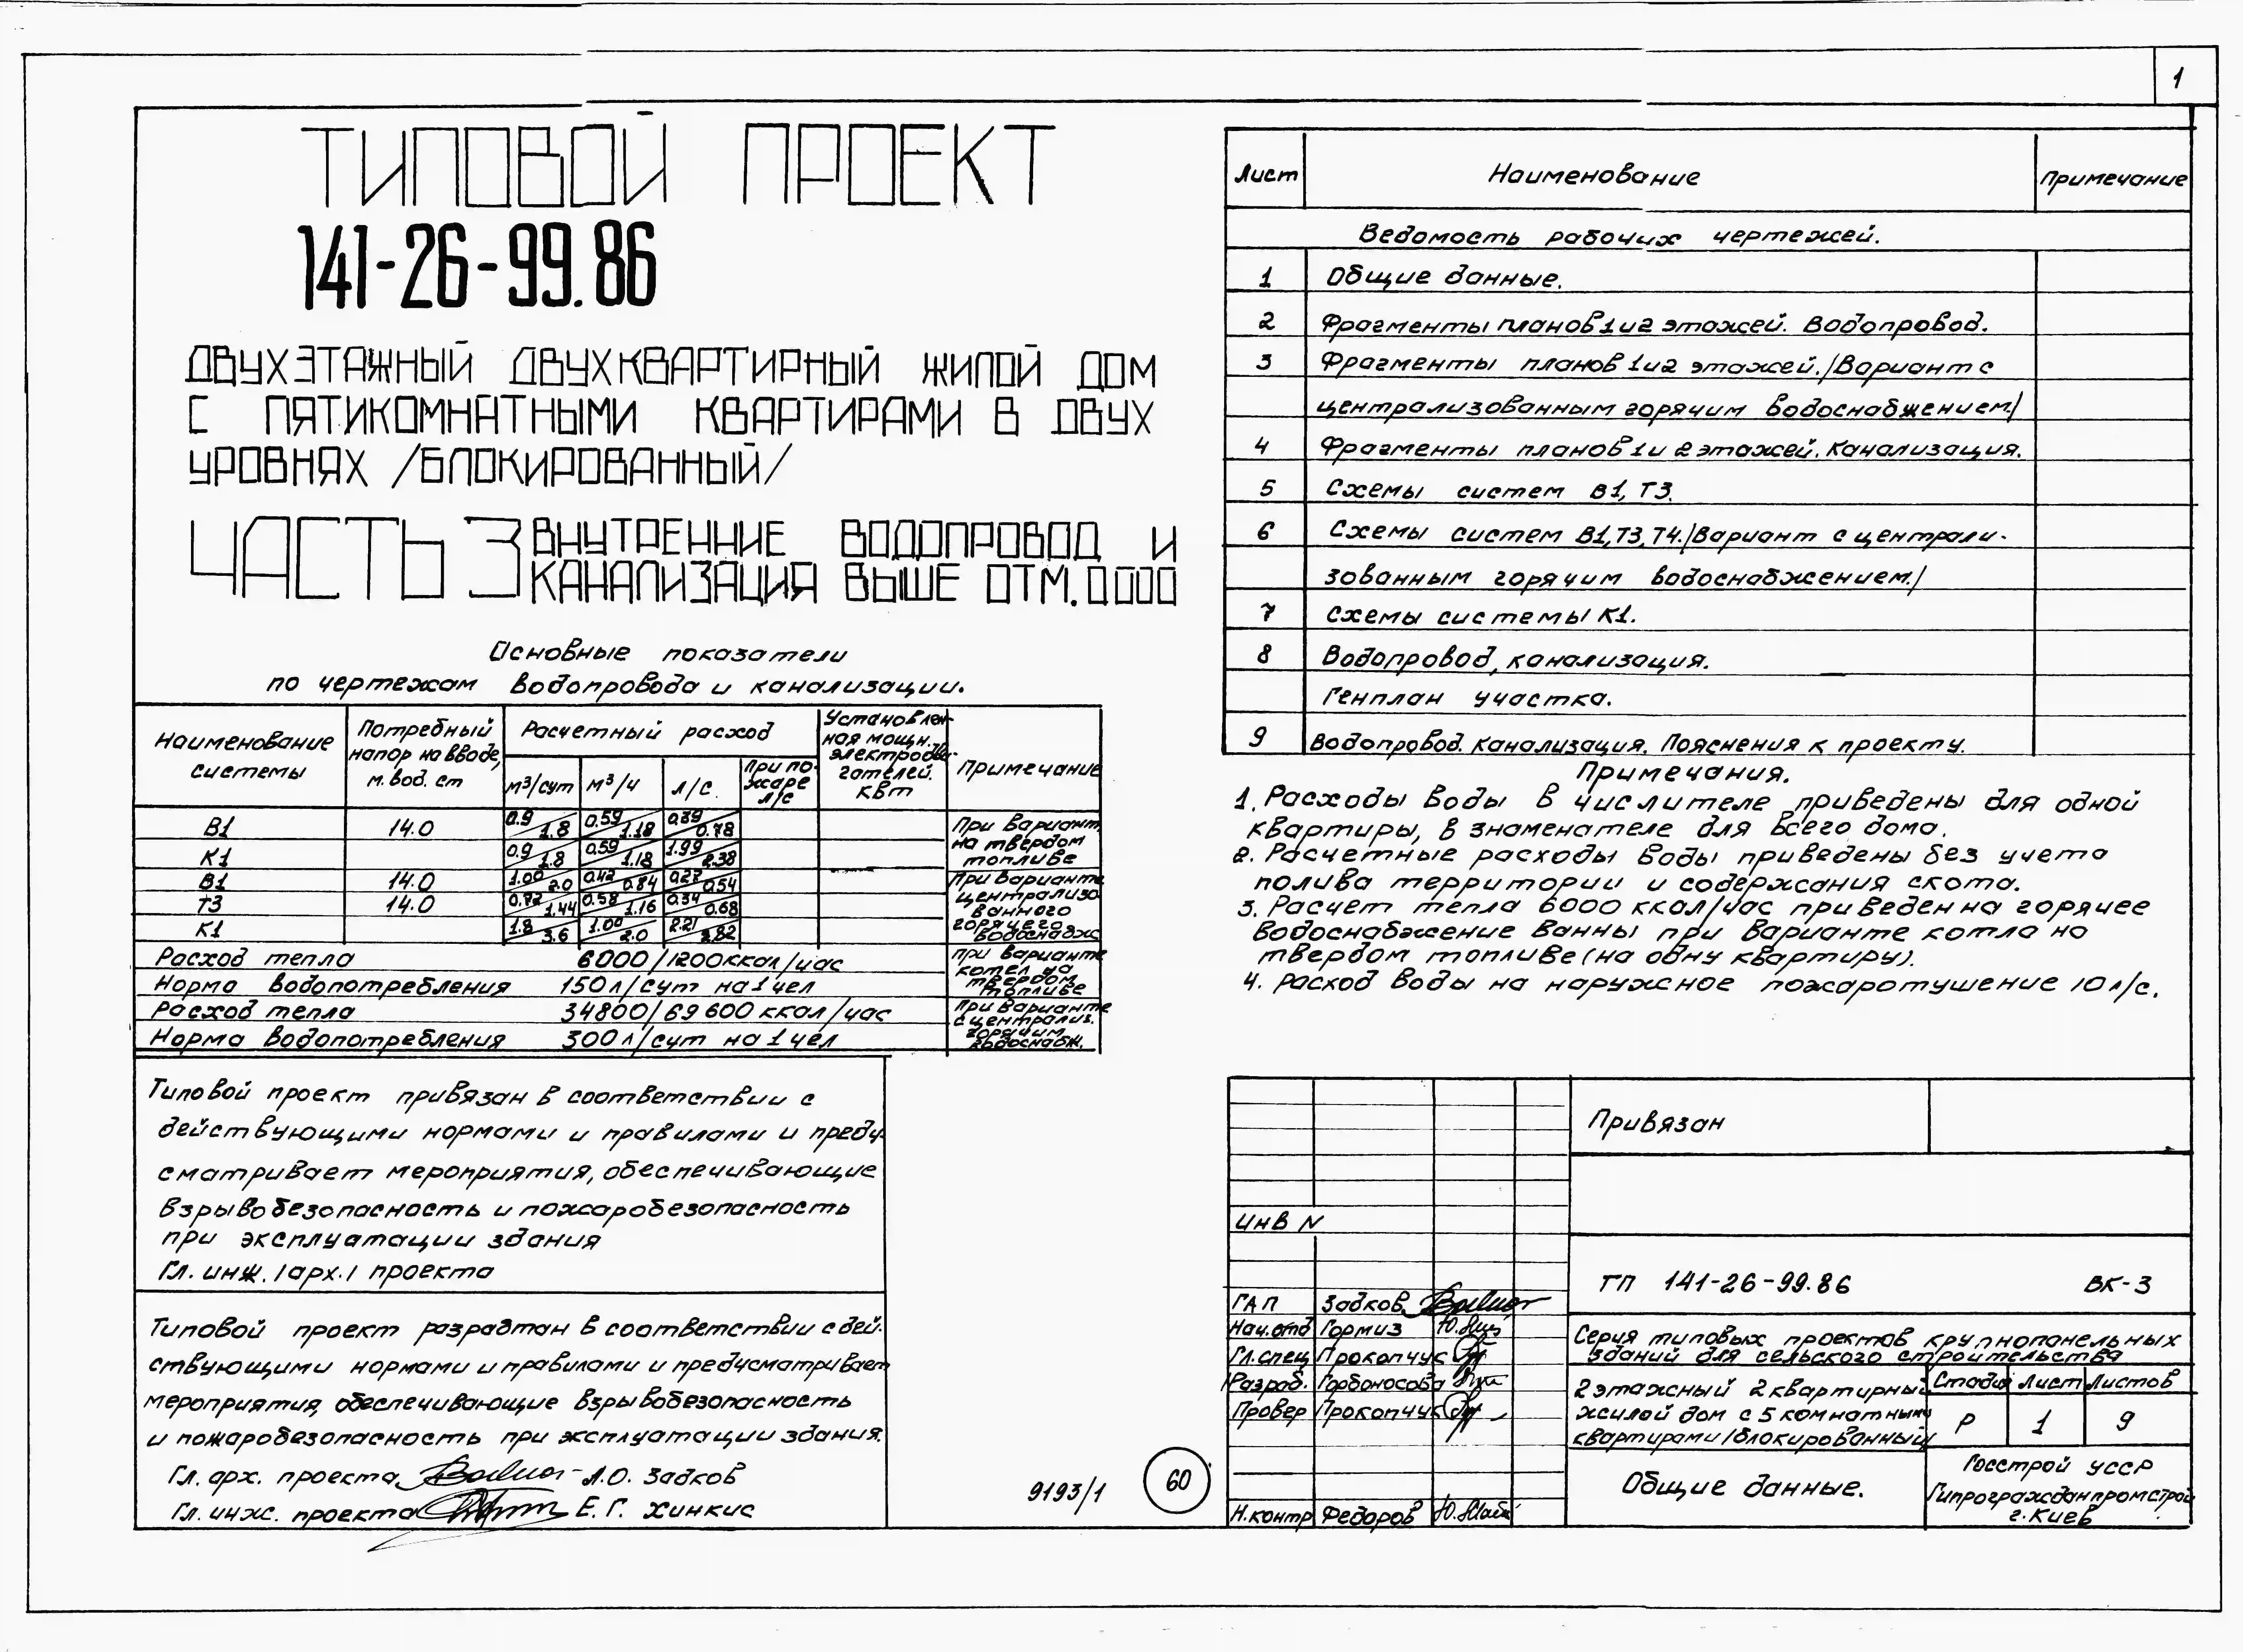 1
ТИПОВОЙ ПРОЕКТ
141-26-99.86
ДВУХЭТАЖНЫЙ ДВУХКВАРТИРНЫЙ ЖИЛОЙ ДОМ
С ПЯТИКОМНАТНЫМИ КВАРТИРАМИ В ДВУХ
УРОВНЯХ /БЛОКИРОВАННЫЙ/
ЧАСТЬ 3 ВНУТРЕННИЕ ВОДОПРОВОД И
КАНАЛИЗАЦИЯ ВЫШЕ ОТМ. 0.000
Основные показатели
по чертежам водопровода и канализации.
Наименование системы
Потребный напор на вводе, м. вод. ст
Расчетный расход
м³/сут м³/ч л/с. При пожаре л/с
Установленная мощн. электродвигателей. квт
Примечание
В1 14.0 0.9/1.8 0.59/1.18 0.39/0.78
К1 0.9/1.8 0.59/1.18 1.99/2.38
При вариант. на твердом топливе
В1 14.0 1.00/2.0 0.42/0.84 0.27/0.54
Т3 14.0 0.72/1.44 0.58/1.16 0.34/0.68
К1 1.8/3.6 1.00/2.0 2.21/2.82
При варианте централизованного горячего водоснабж
Расход тепла 6000/1200ккал/час
Норма водопотребления 150л/сут на 1 чел
при варианте котел на твердом топливе
Расход тепла 34800/69600 ккал/час
Норма водопотребления 300л/сут на 1 чел
При варианте с централиз. горячим водоснабж.
Типовой проект привязан в соответствии с
действующими нормами и правилами и преду-
сматривает мероприятия, обеспечивающие
взрывобезопасность и пожаробезопасность
при эксплуатации здания
Гл. инж. /арх./ проекта
Типовой проект разрабтан в соответствии с дей-
ствующими нормами и правилами и предусматривает
мероприятия, обеспечивающие взрывобезопасность
и пожаробезопасность при эксплуатации здания.
Гл. арх. проекта Л.О. Задков
Гл. инж. проекта Е.Г. Хинкис
9193/1
60
Лист Наименование Примечание
Ведомость рабочих чертежей.
1 Общие данные.
2 Фрагменты планов 1 и 2 этажей. Водопровод.
3 Фрагменты планов 1 и 2 этажей./Вариант с
централизованным горячим водоснабжением./
4 Фрагменты планов 1 и 2 этажей. Канализация.
5 Схемы систем В1, Т3.
6 Схемы систем В1, Т3, Т4./Вариант с централи-
зованным горячим водоснабжением./
7 Схемы системы К1.
8 Водопровод, канализация.
Генплан участка.
9 Водопровод. Канализация. Пояснения к проекту.
Примечания.
1. Расходы воды в числителе приведены для одной
квартиры, в знаменателе для всего дома.
2. Расчетные расходы воды приведены без учета
полива территории и содержания скота.
3. Расчет тепла 6000 ккал/час приведен на горячее
водоснабжение ванны при варианте котла на
твердом топливе (на одну квартиру).
4. Расход воды на наружное пожаротушение 10 л/с.
Привязан
Инв N
ТП 141-26-99.86 ВК-3
ГАП Задков
Нач.отд Гормиз
Гл.спец Прокопчук
Разраб. Горбоносова
Провер Прокопчук
Н.контр Федоров
Серия типовых проектов крупнопанельных
зданий для сельского строительства
2 этажный 2 квартирный
жилой дом с 5 комнатными
квартирами /блокированный/
Стадия Лист Листов
Р 1 9
Общие данные.
Госстрой УССР
Гипрогражданпромстрой
г. Киев